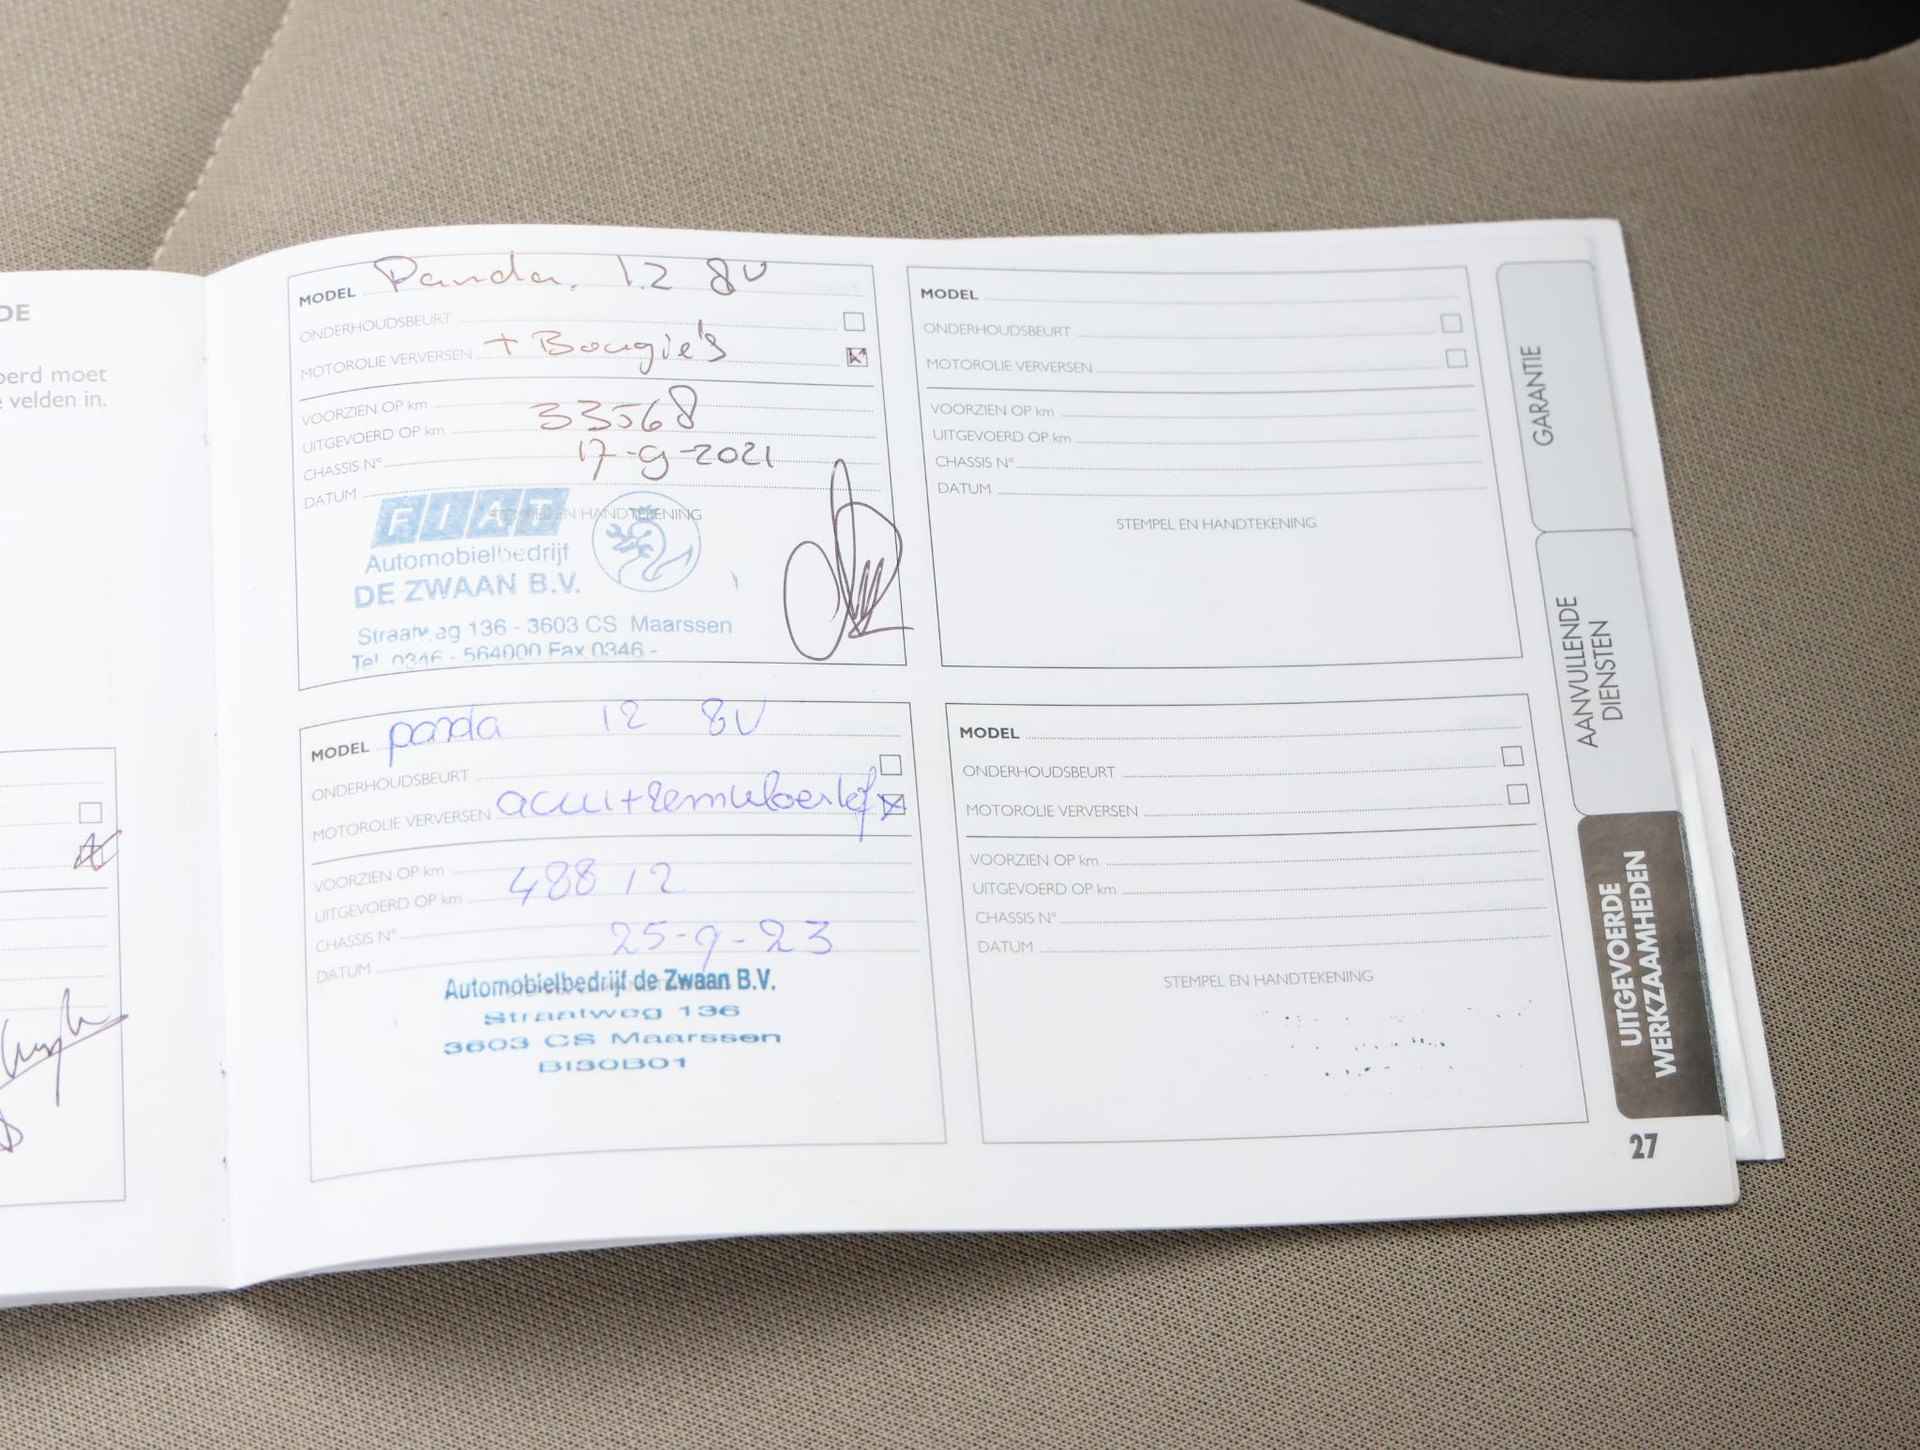 DE
oerd moet
e velden in.
MODEL Panda. 1.2 8V
ONDERHOUDSBEURT
MOTOROLIE VERVERSEN + Bougie's
VOORZIEN OP km
UITGEVOERD OP km 33568
CHASSIS N° 17-9-2021
DATUM
STEMPEL EN HANDTEKENING
FIAT
Automobielbedrijf
DE ZWAAN B.V.
Straatweg 136 - 3603 CS Maarssen
Tel. 0346 - 564000 Fax 0346 -
MODEL panda 12 8V
ONDERHOUDSBEURT
MOTOROLIE VERVERSEN accu + remvloeistof
VOORZIEN OP km
UITGEVOERD OP km 48812
CHASSIS N°
DATUM 25-9-23
Automobielbedrijf de Zwaan B.V.
Straatweg 136
3603 CS Maarssen
BI30B01
MODEL
ONDERHOUDSBEURT
MOTOROLIE VERVERSEN
VOORZIEN OP km
UITGEVOERD OP km
CHASSIS N°
DATUM
STEMPEL EN HANDTEKENING
MODEL
ONDERHOUDSBEURT
MOTOROLIE VERVERSEN
VOORZIEN OP km
UITGEVOERD OP km
CHASSIS N°
DATUM
STEMPEL EN HANDTEKENING
GARANTIE
AANVULLENDE
DIENSTEN
UITGEVOERDE
WERKZAAMHEDEN
27